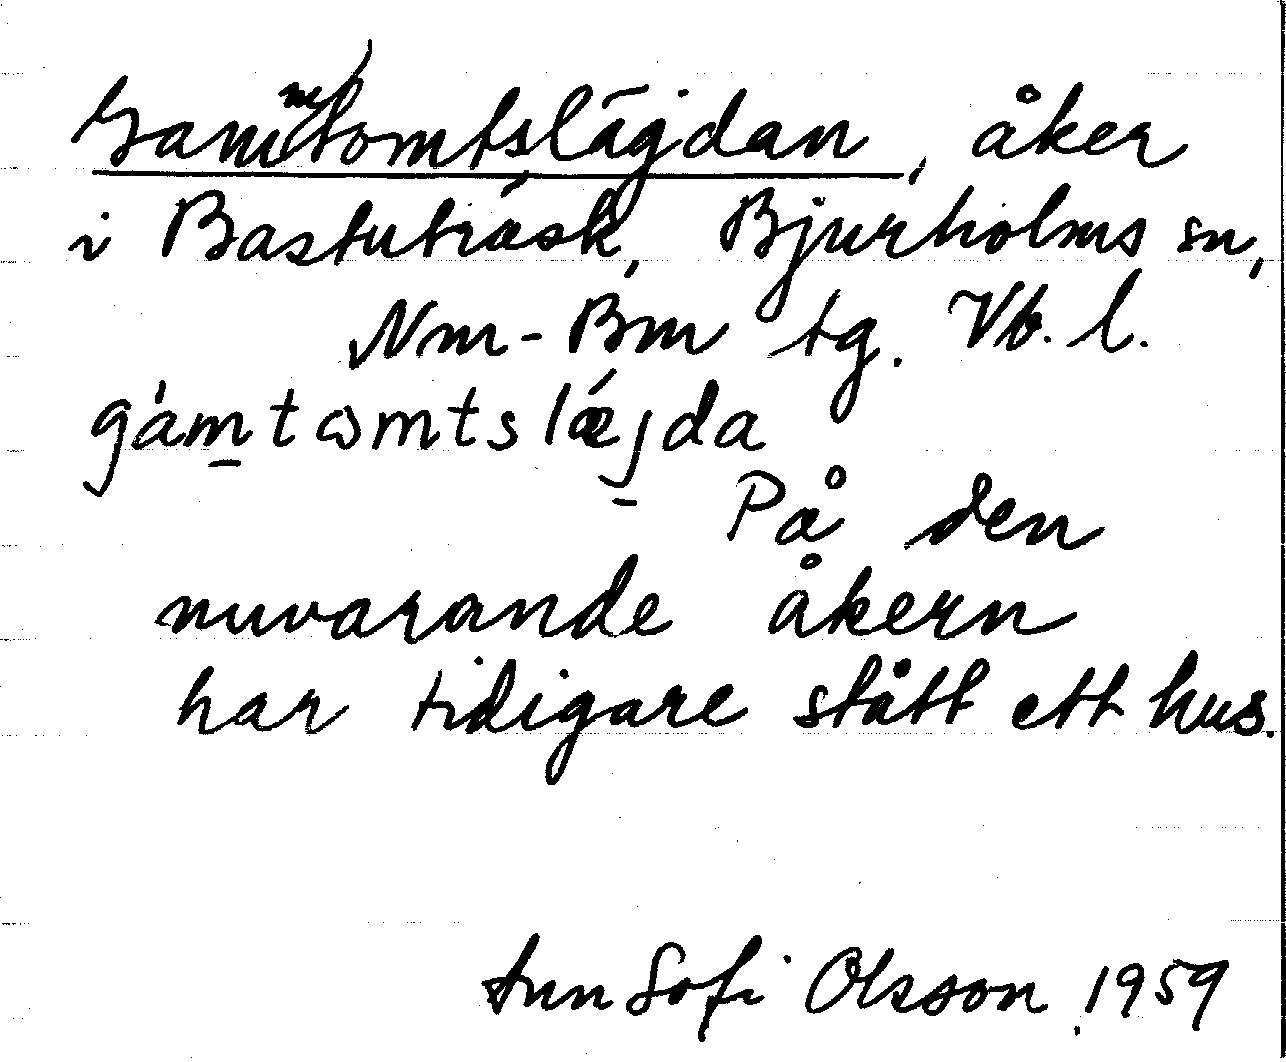 Gammtomtslägdan, åker
i Bastuträsk, Bjurholms sn,
Nm-Bm tg. Vb. l.
gàm̲tωmtslǽj̲da
På den
nuvarande åkern
har tidigare stått ett hus.
Ann Sofi Olsson 1959